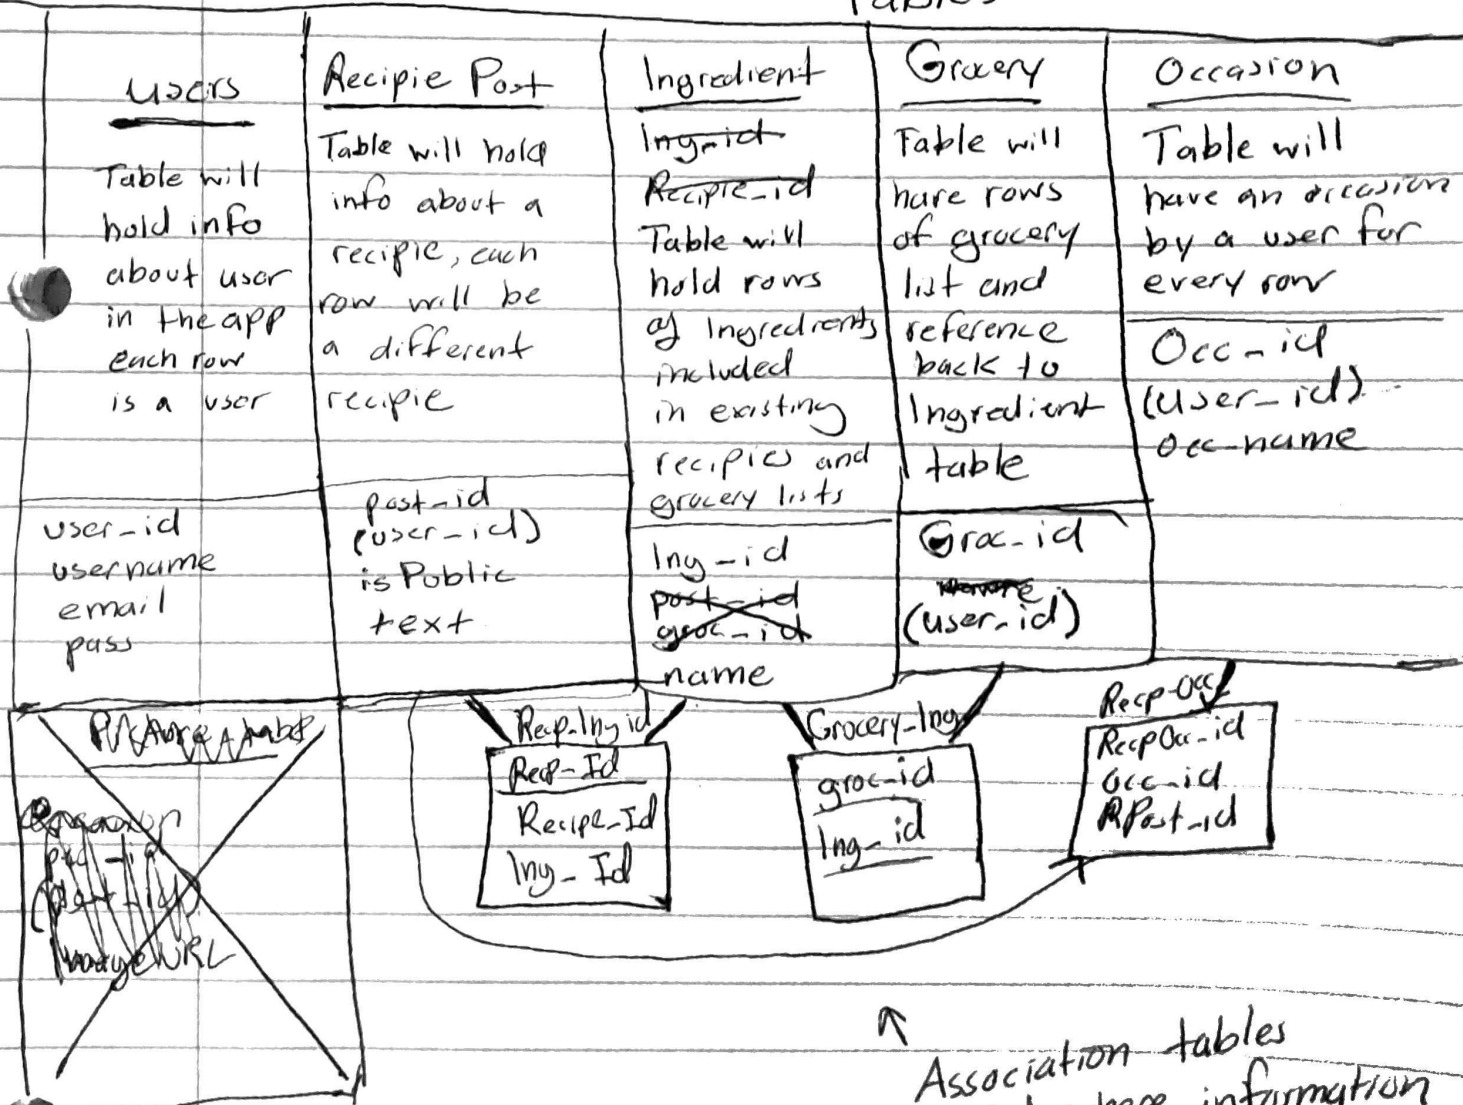 Tables
Users
Table will
hold info
about user
in the app
each row
is a user
user_id
username
email
pass
Recipie Post
Table will hold
info about a
recipie, each
row will be
a different
recipie
post_id
(user_id)
isPublic
text
Ingredient
Ing_id
Recipie_id
Table will
hold rows
of Ingredients
included
in existing
recipies and
grocery lists
Ing_id
post_id
groc_id
name
Grocery
Table will
have rows
of grocery
list and
reference
back to
Ingredient
table
Groc_id
(user_id)
Occasion
Table will
have an occasion
by a user for
every row
Occ_id
(user_id)
occ_name
ImageURL
Recp_Ing id
Recp_Id
Recipe_Id
Ing_Id
Grocery_Ing
groc_id
Ing_id
Recp_Occ
RecpOcc_id
Occ_id
RPost_id
Association tables
have information